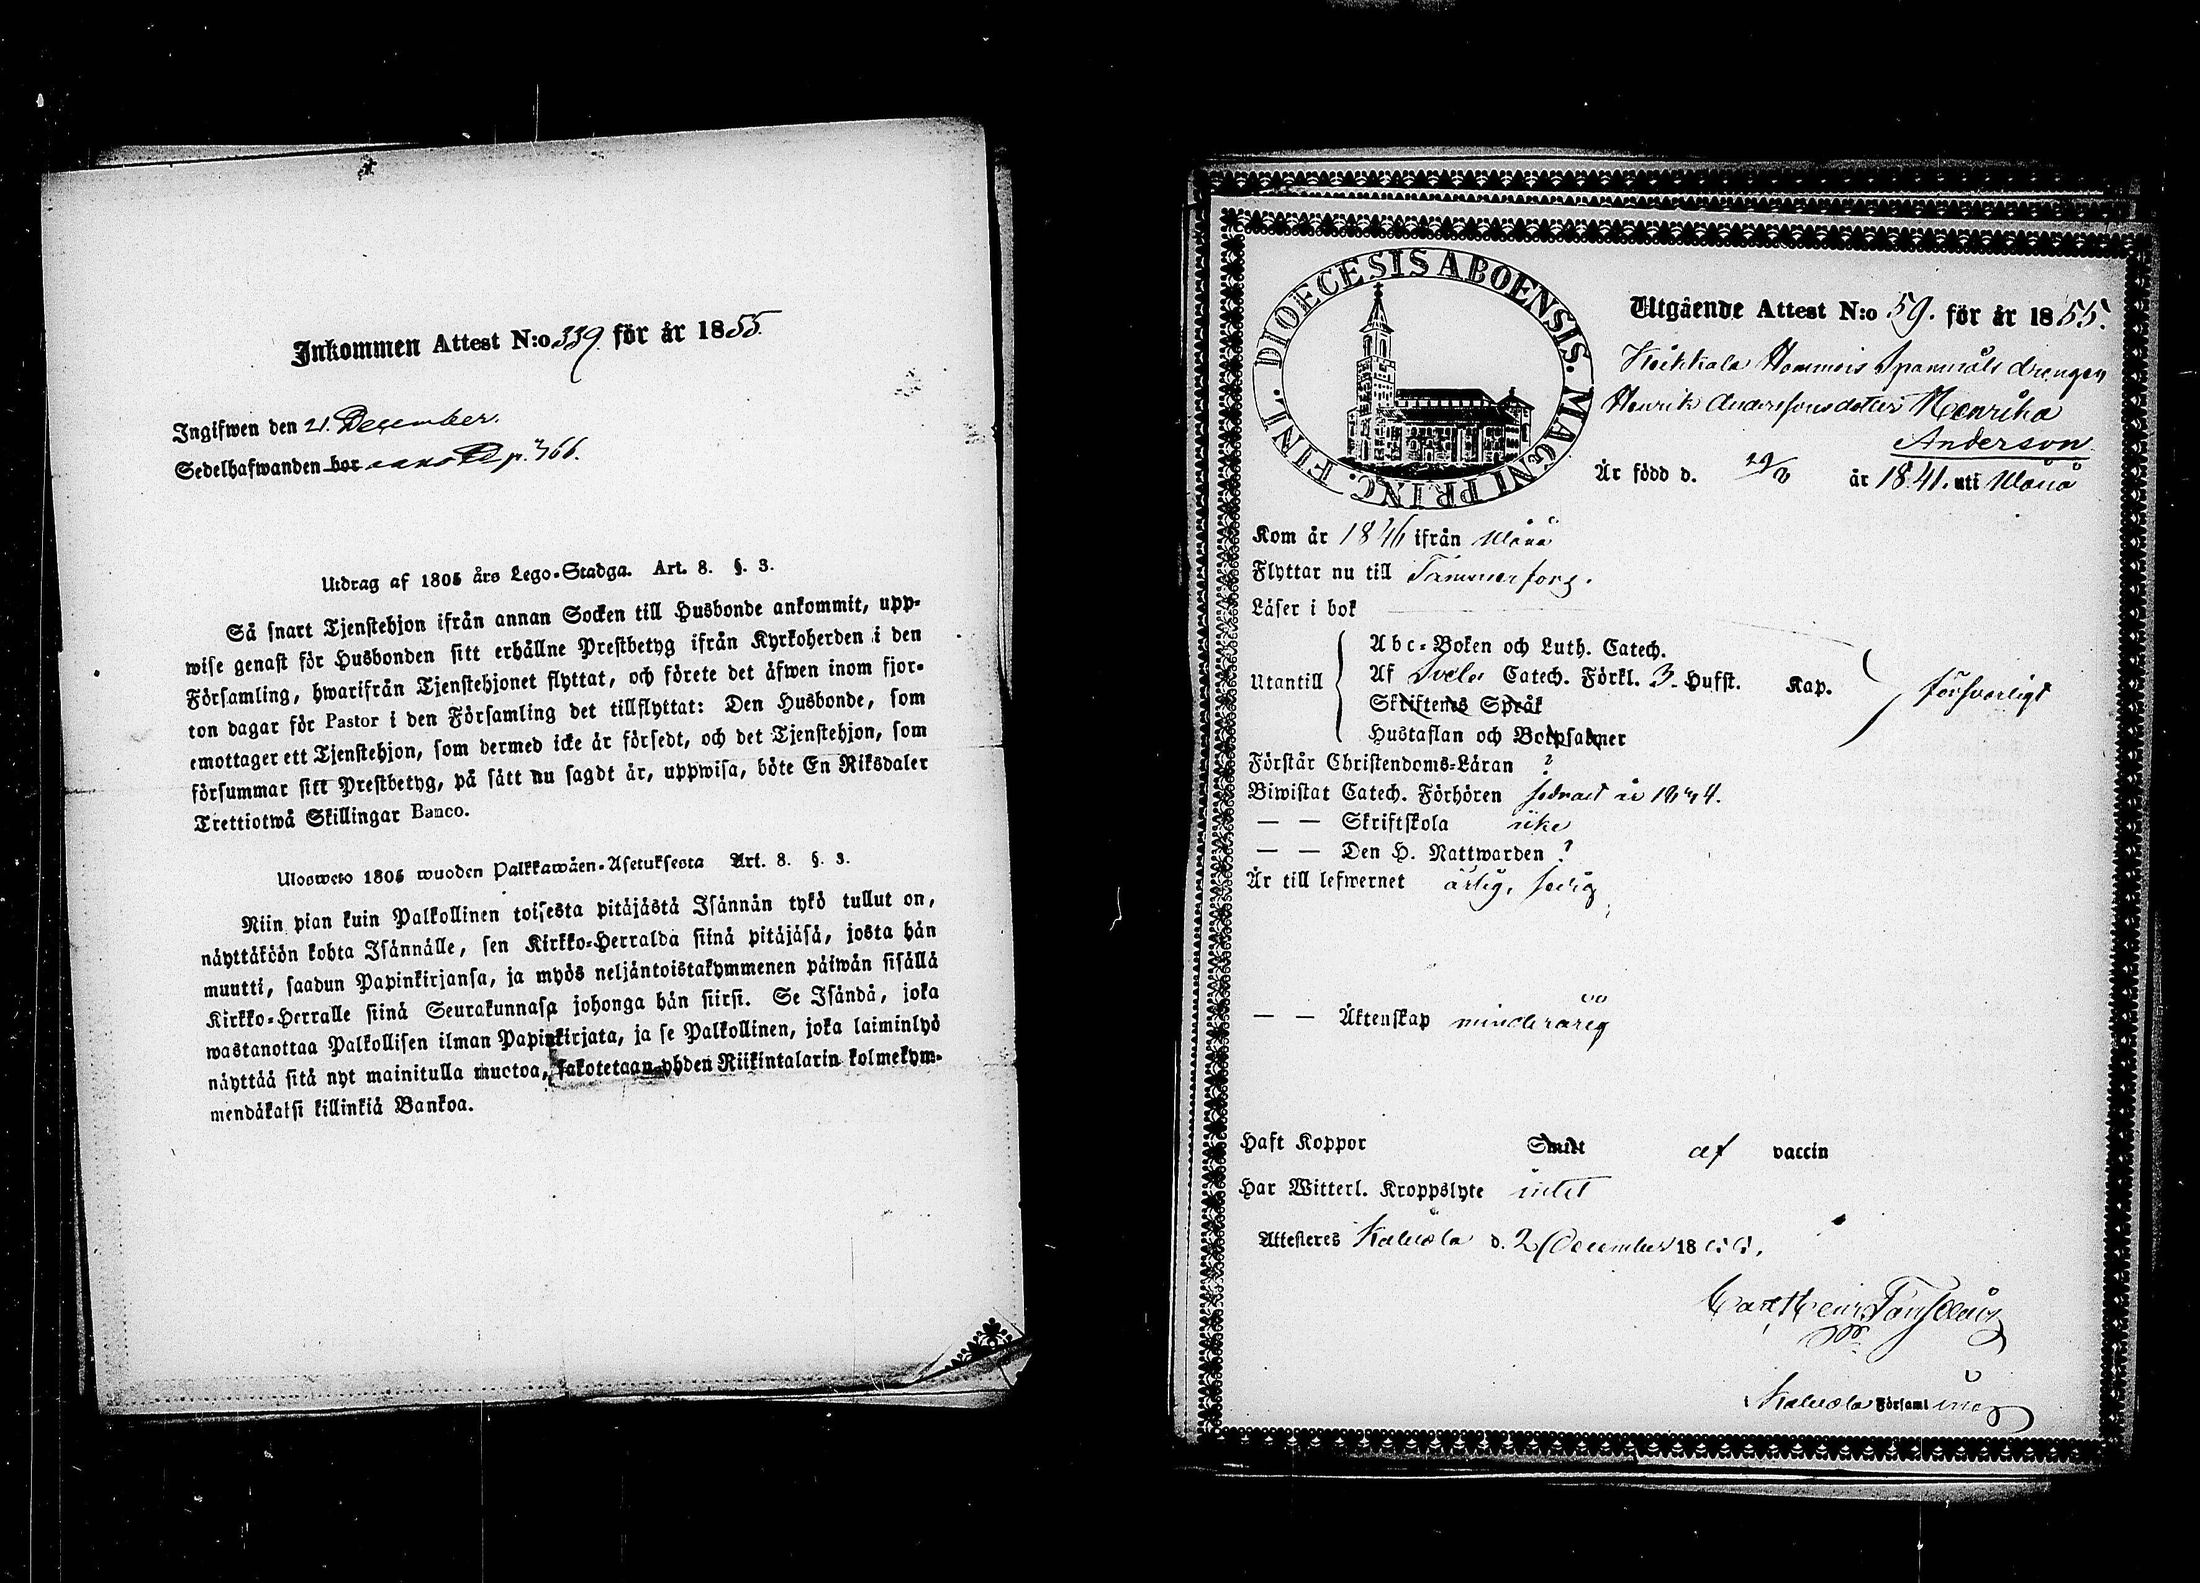 Inkommen Attest N:o 339. för år 1855.
Ingifwen den 21. December.
Sedelhafwanden bor p. 366.
Utdrag af 1805 års Lego-Stadga. Art. 8. §. 3.
Så snart Tjenstehjon ifrån annan Socken till Husbonde ankommit, upp-
wise genast för Husbonden sitt erhållne Prestbetyg ifrån Kyrkoherden i den
Församling, hwarifrån Tjenstehjonet flyttat, och förete det äfwen inom fjor-
ton dagar för Pastor i den Församling det tillflyttat: Den Husbonde, som
emottager ett Tjenstehjon, som dermed icke är försedt, och det Tjenstehjon, som
försummar sitt Prestbetyg, på sätt nu sagdt är, uppwisa, böte En Riksdaler
Trettiotwå Skillingar Banco.
Ulosweto 1805 wuoden Palkkawäen-Asetuksesta Art. 8. §. 3.
Niin pian kuin Palkollinen toisesta pitäjästä Isännän tykö tullut on,
näyttäköön kohta Isännälle, sen Kirkko-Herralda siinä pitäjäsä, josta hän
muutti, saadun Papinkirjansa, ja myös neljäntoistakymmenen päiwän sisällä
Kirkko-Herralle siinä Seurakunnasa johonga hän siirsi. Se Isändä, joka
wastanottaa Palkollisen ilman Papinkirjata, ja se Palkollinen, joka laiminlyö
näyttää sitä nyt mainitulla muotoa, sakotetaan yhden Riikintalarin kolmekym-
mendäkaksi killinkiä Bankoa.
DIOECESIS ABOENSIS. MAGNI PRINC. FINL.
Utgående Attest N:o 59. för år 1855.
Heikkala Hommois Spanmåls drengen
Henrik Anderssons dotter Henrika
Anderson
Är född d. 29/8 år 1841. uti Urais
Kom år 1846 ifrån
Flyttar nu till Tammerfors.
Läser i bok
Utantill
Abc-Boken och Luth. Catech.
Af Svebe Catech. Förkl. 3. Hufst. Kap.
Skriftenes Språk
Hustaflan och Botpsalmer
försvarligt
Förstår Christendoms-Läran ?
Biwistat Catech. Förhören sednast år 1854.
— — Skriftskola icke
— — Den H. Nattwarden ?
Är till lefwernet ärlig, sedig
— — Äktenskap minderårig
Haft Koppor Smitt af vaccin
Har Witterl. Kroppslyte intet
Attesteres Kalvola d. 2 December 1855.
Carl Henr
Kalvola Församling